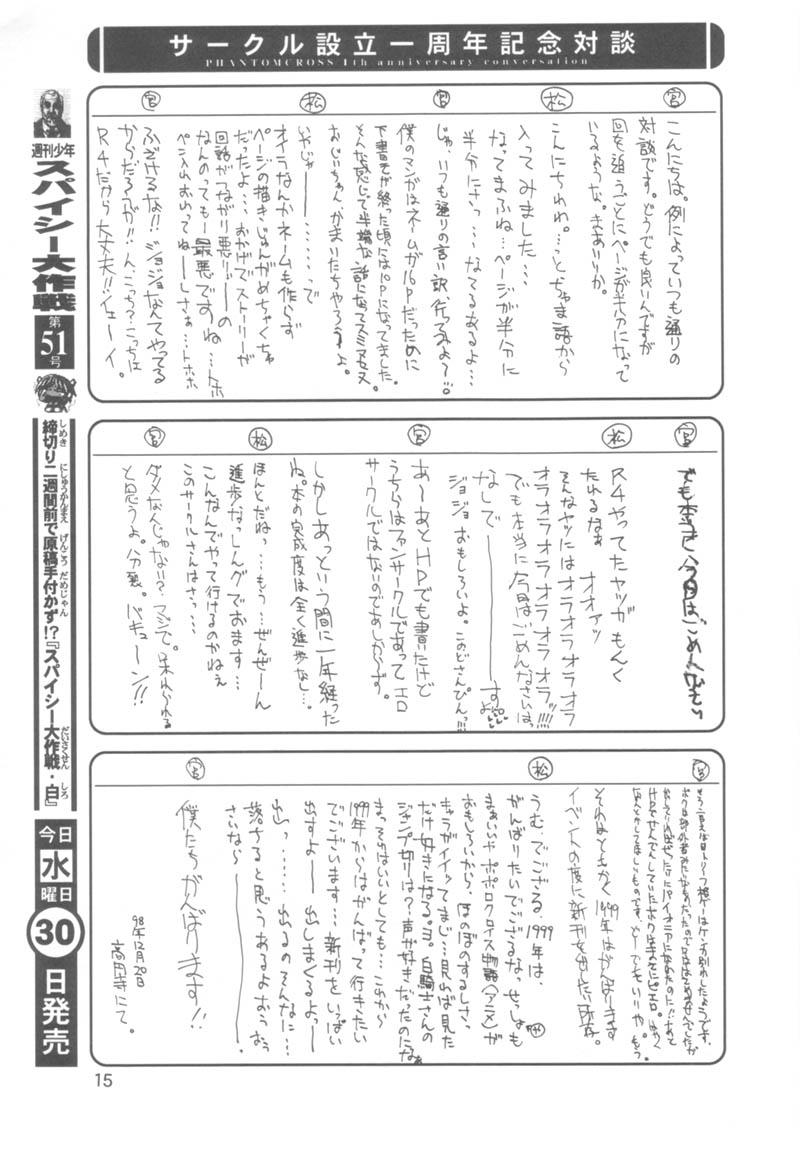 サークル設立一周年記念対談
PHANTOMCROSS 1th anniversary conversation
宮
こんにちは。例によっていつも通りの
対談です。どうでも良いんですが
回を追うごとにページが半分になって
いるような。きあいりか。
松
こんにちわわ。…とちゅま語から
入ってみました…
なってまふね…ページが半分に
半分にさっ…なてるあるよ…
宮
じゃ、いつも通りの言い訳、行ってみよ〜!!
僕のマンガはネームが16Pだったために
下書きが終った頃には10Pになってました。
そんな感じで半端な話になってスミマセヌ
おじいちゃん、かまいたちやろうよ。
松
いやじゃー………で
オイラなんかネームも作らず
ページの描きじゅんがめちゃくちゃ
だったよ…おかげでストーリーが
回話がつながり悪リリーの
なんのっても最悪ですね…トホ
ペン入れおわってねーしさぁ…トホホ
宮
ふざけるな!!ジョジョなんてやってる
からだろうが!!んこっち?こっちは
R4だから大丈夫!!イェーイ。
宮
でも本当に今回はごめんなさい
松
R4やってたヤツがもんく
たれるなぁ オオァッ
そんなヤツにはオラオラオラオラ
オラオラオラオラオラオラ!!!!
でも本当に今回はごめんなさいはっ
なしで――――すよ
ジョジョおもしろいよ。このどさんぴんっ!!!
宮
あ〜あとHPでも書いたけど
うちらはファンサークルであってエロ
サークルではないのであしからず。
しかしあっという間に一年経った
ね。本の完成度は全く進歩なし…。
松
ほんとだねっ…もう…ぜんぜーん
進歩なっしんグでおます…
こんなんでやって行けるのかねぇ
このサークルさんはさっ…
宮
ダメなんじゃない?マジで。呆れられる
と思うよ。分裂。バキューン!!
宮
それはともかく1999年はがんばります
イベントの度に新刊を出したい所存。
松
うむ、でござる、1999年は、
がんばりたいでござるなっせっしゃも
まぁいいやポポロクロイス物語〈アニメ〉が
おもしろいから、ほのぼのするしさっ
キャラがイイッてまじ…見れば見た
だけ好きになるヨ。白騎士さんの
ジャンプ切りは?声が好きだったのになぁ
まっそれはいいとしても…これから
1999年からはがんばって行きたい
でございます…新刊をいっぱい
出すよ――出しまくるよ――
出っ……出るのそんなに…
落ちると思うあるよおぅおぅ
さいなら――――。
宮
僕たちがんばります!!
98年12月20日
高田寺にて。
週刊少年
スパイシー大作戦
第51号
締切り二週間前で原稿手付かず!?『スパイシー大作戦・白』
しめき にしゅうかんまえ げんこう だめじゃん だいさくせん しろ
今日
水
曜日
30
日発売
15